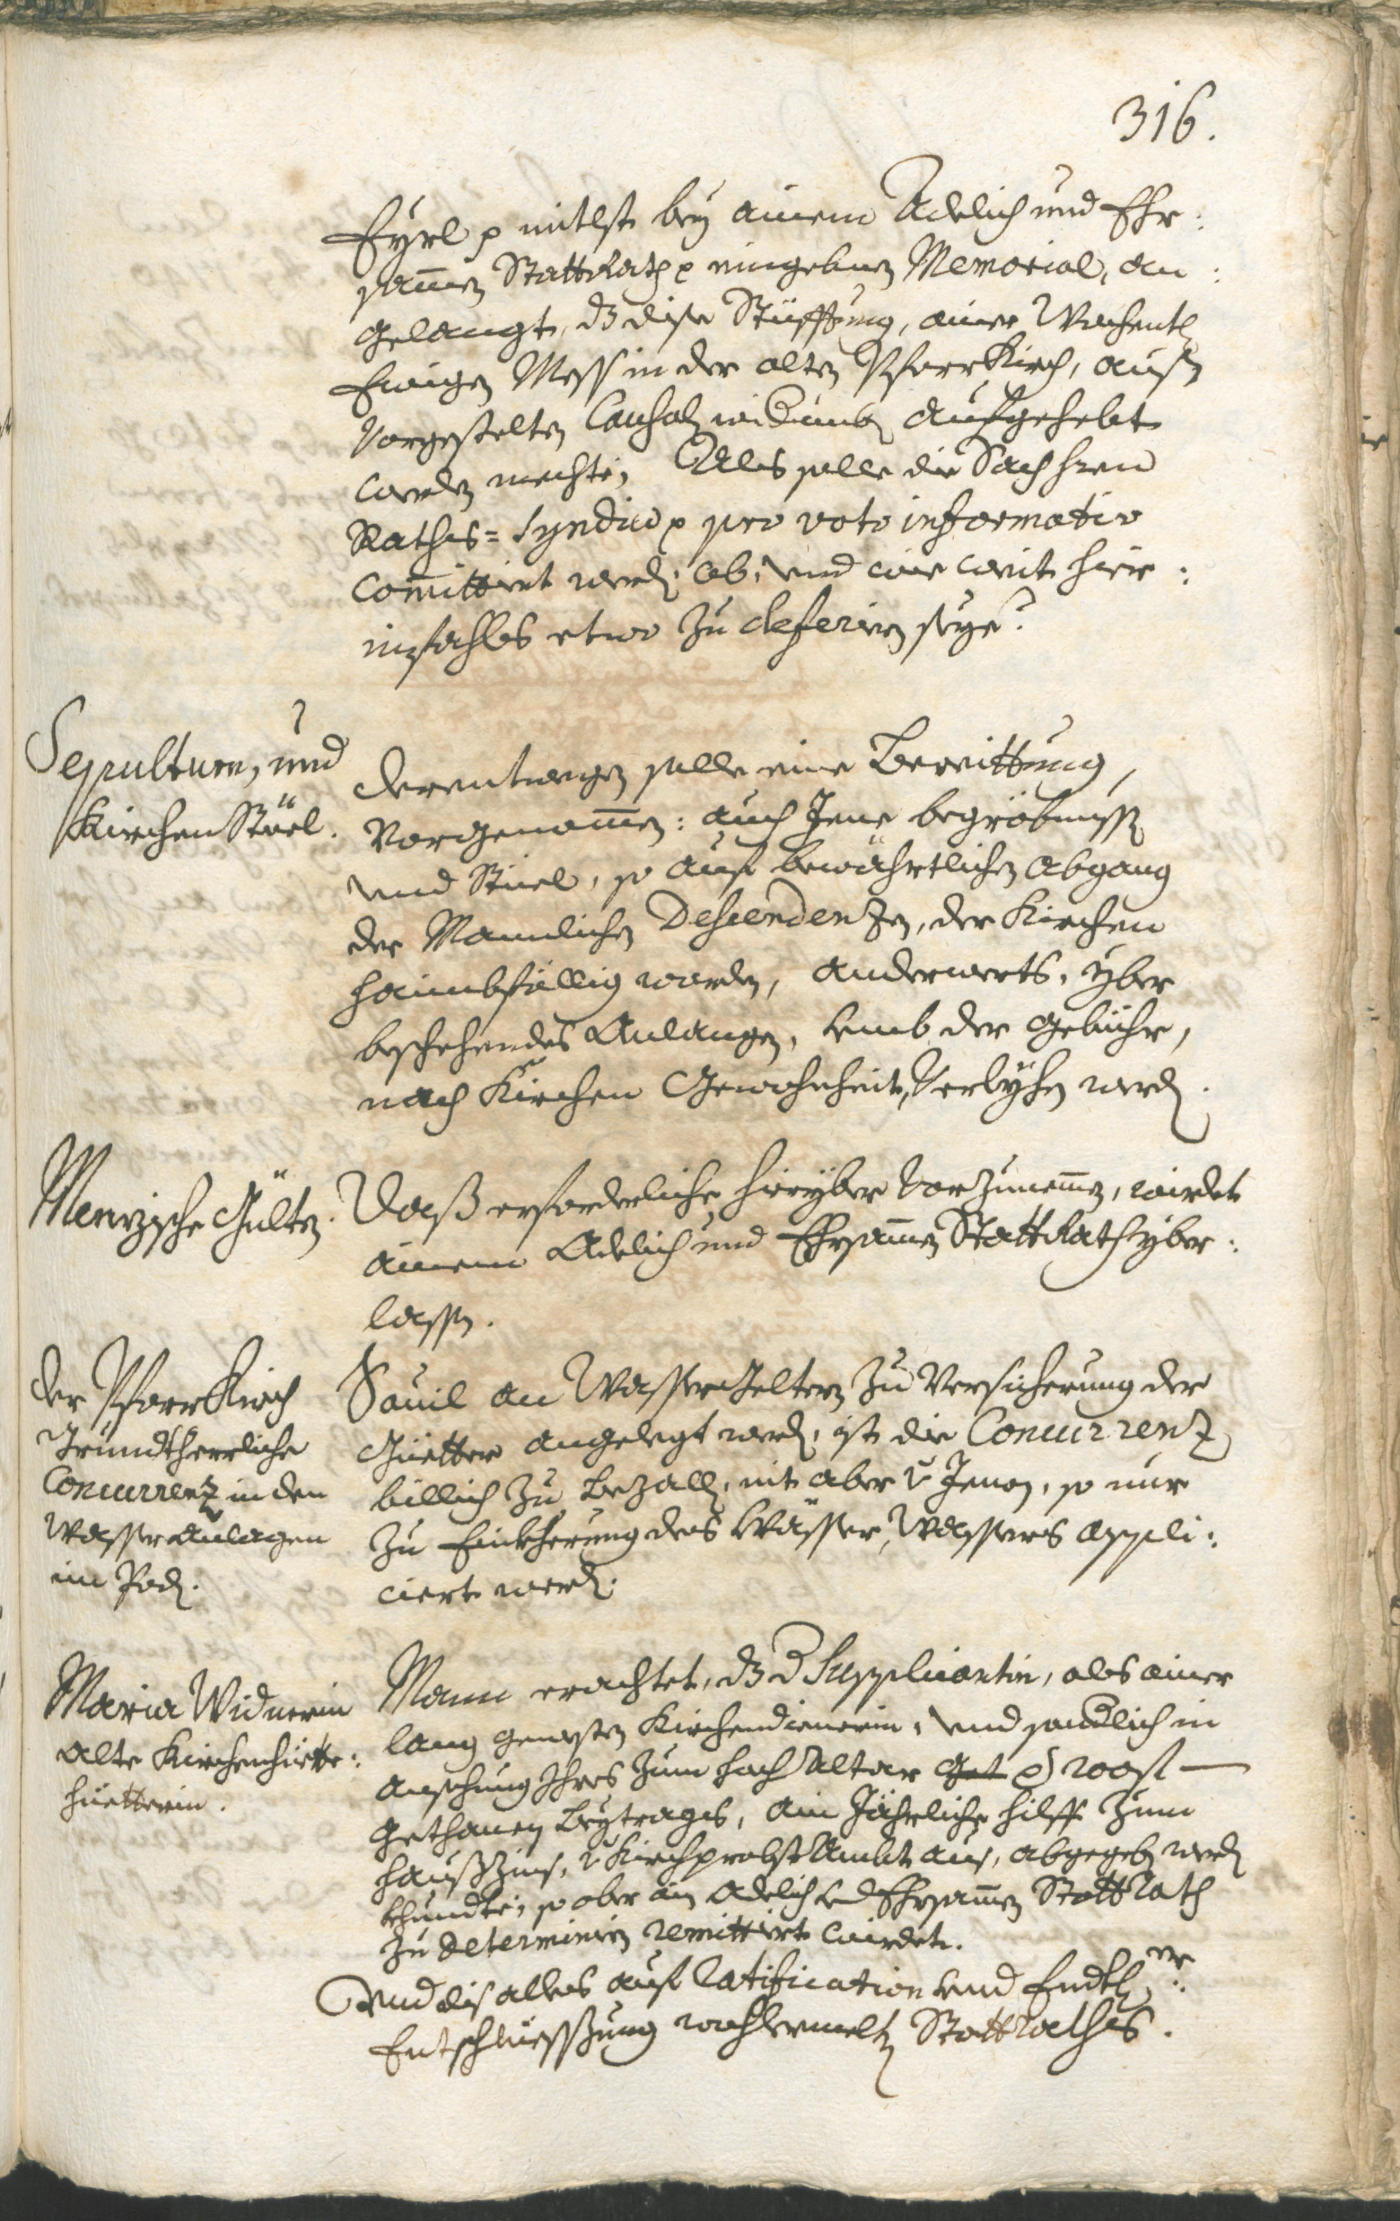 316.
Eyrl p mitlst bey ainem Adelich und Ehr:
samen StattRath p eingebnen Memorial, an:
gelangt, dz dise Stüfftung, ainer Wochentl
Ewigen Mess in der alten PfarrKirch, auß
Vorgestelten Causalen widumb aufgehebt
werden mechte; Alls solle die Sach hern
Raths=Syndico p pro voto informativo
committirt werd: ob, und wie weit hier:
infahls etwo zu deferirn seye?
Sepulturn, und
KirchenStüel.
derentwegen solle eine Bereittung,
Vorgenommen: auch Jene begröbnuss
und Stüel, so auf bewährtlichen abgang
der Mannlichen Descendenzen, der Kirchen
haimbfällig worden, anderwerts, yber
beschehendes Anlangen, umb der gebühr,
nach Kirchen Gewohnheit, Verlyhen werd.
Menzische Gülten.
Daß erforderliche hieryber Vorzunemen, wirdet
ainem Adelich und Ehrsamen StattRath yber:
lassen.
der PfarrKirch
Grundtherrliche
Concurrenz in den
Wasser anlagen
im Pod.
Sovil an Wassergeltern zu Versicherung der
Güetter angelegt werd, ist die Concurrenz
billich zu bezalln, nit aber v Jenen, so nur
zu Einkherung des Wässer, Wassers appli:
ciert werd:
Maria Widnerin
alte Kirchenhiette:
hüetterin.
Mann erachtet, dz d Supplicantin, als ainer
lang gewesten Kirchendienerin, und sondlich in
ansehung Ihres zum hoch Altar Get p 200 fl —
gethanen Beytrages, ain Jährliche hilff zum
haußzins, v KirchprobstAmbt aus, abgegeben werd
khundte; so aber ain Adelich und Ehrsamen StattRath
zu determinirn remittirt wirdet.
Und dis alles auf Ratification und Endtl er:
Entschliessung wohlermelten StattRathes.